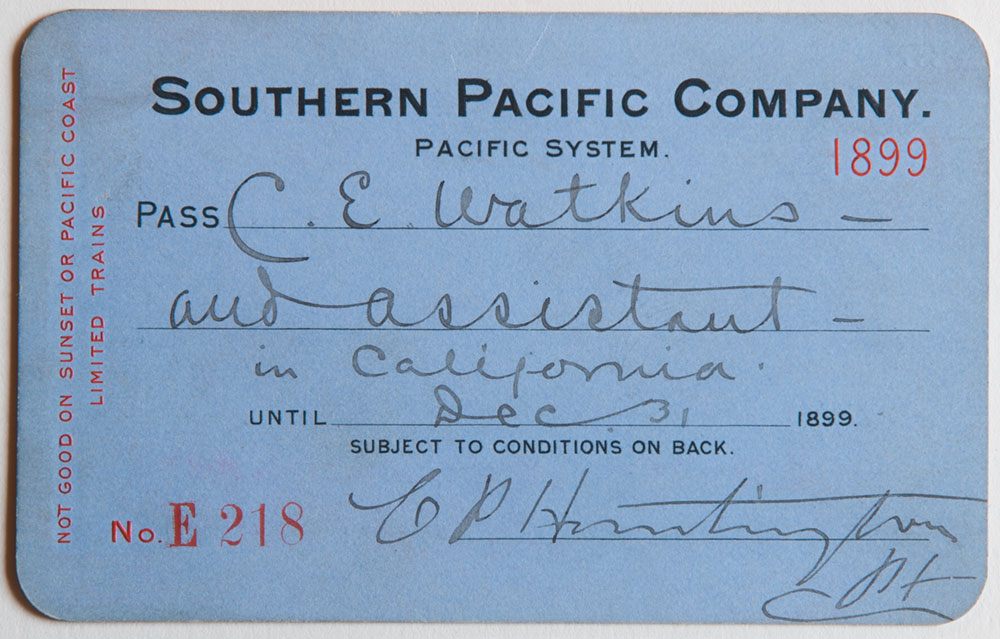 SOUTHERN PACIFIC COMPANY.
PACIFIC SYSTEM.
1899
PASS C. E. Watkins —
and assistant —
in California.
UNTIL Dec. 31 1899.
SUBJECT TO CONDITIONS ON BACK.
No. E 218
C P Huntington
NOT GOOD ON SUNSET OR PACIFIC COAST
LIMITED TRAINS